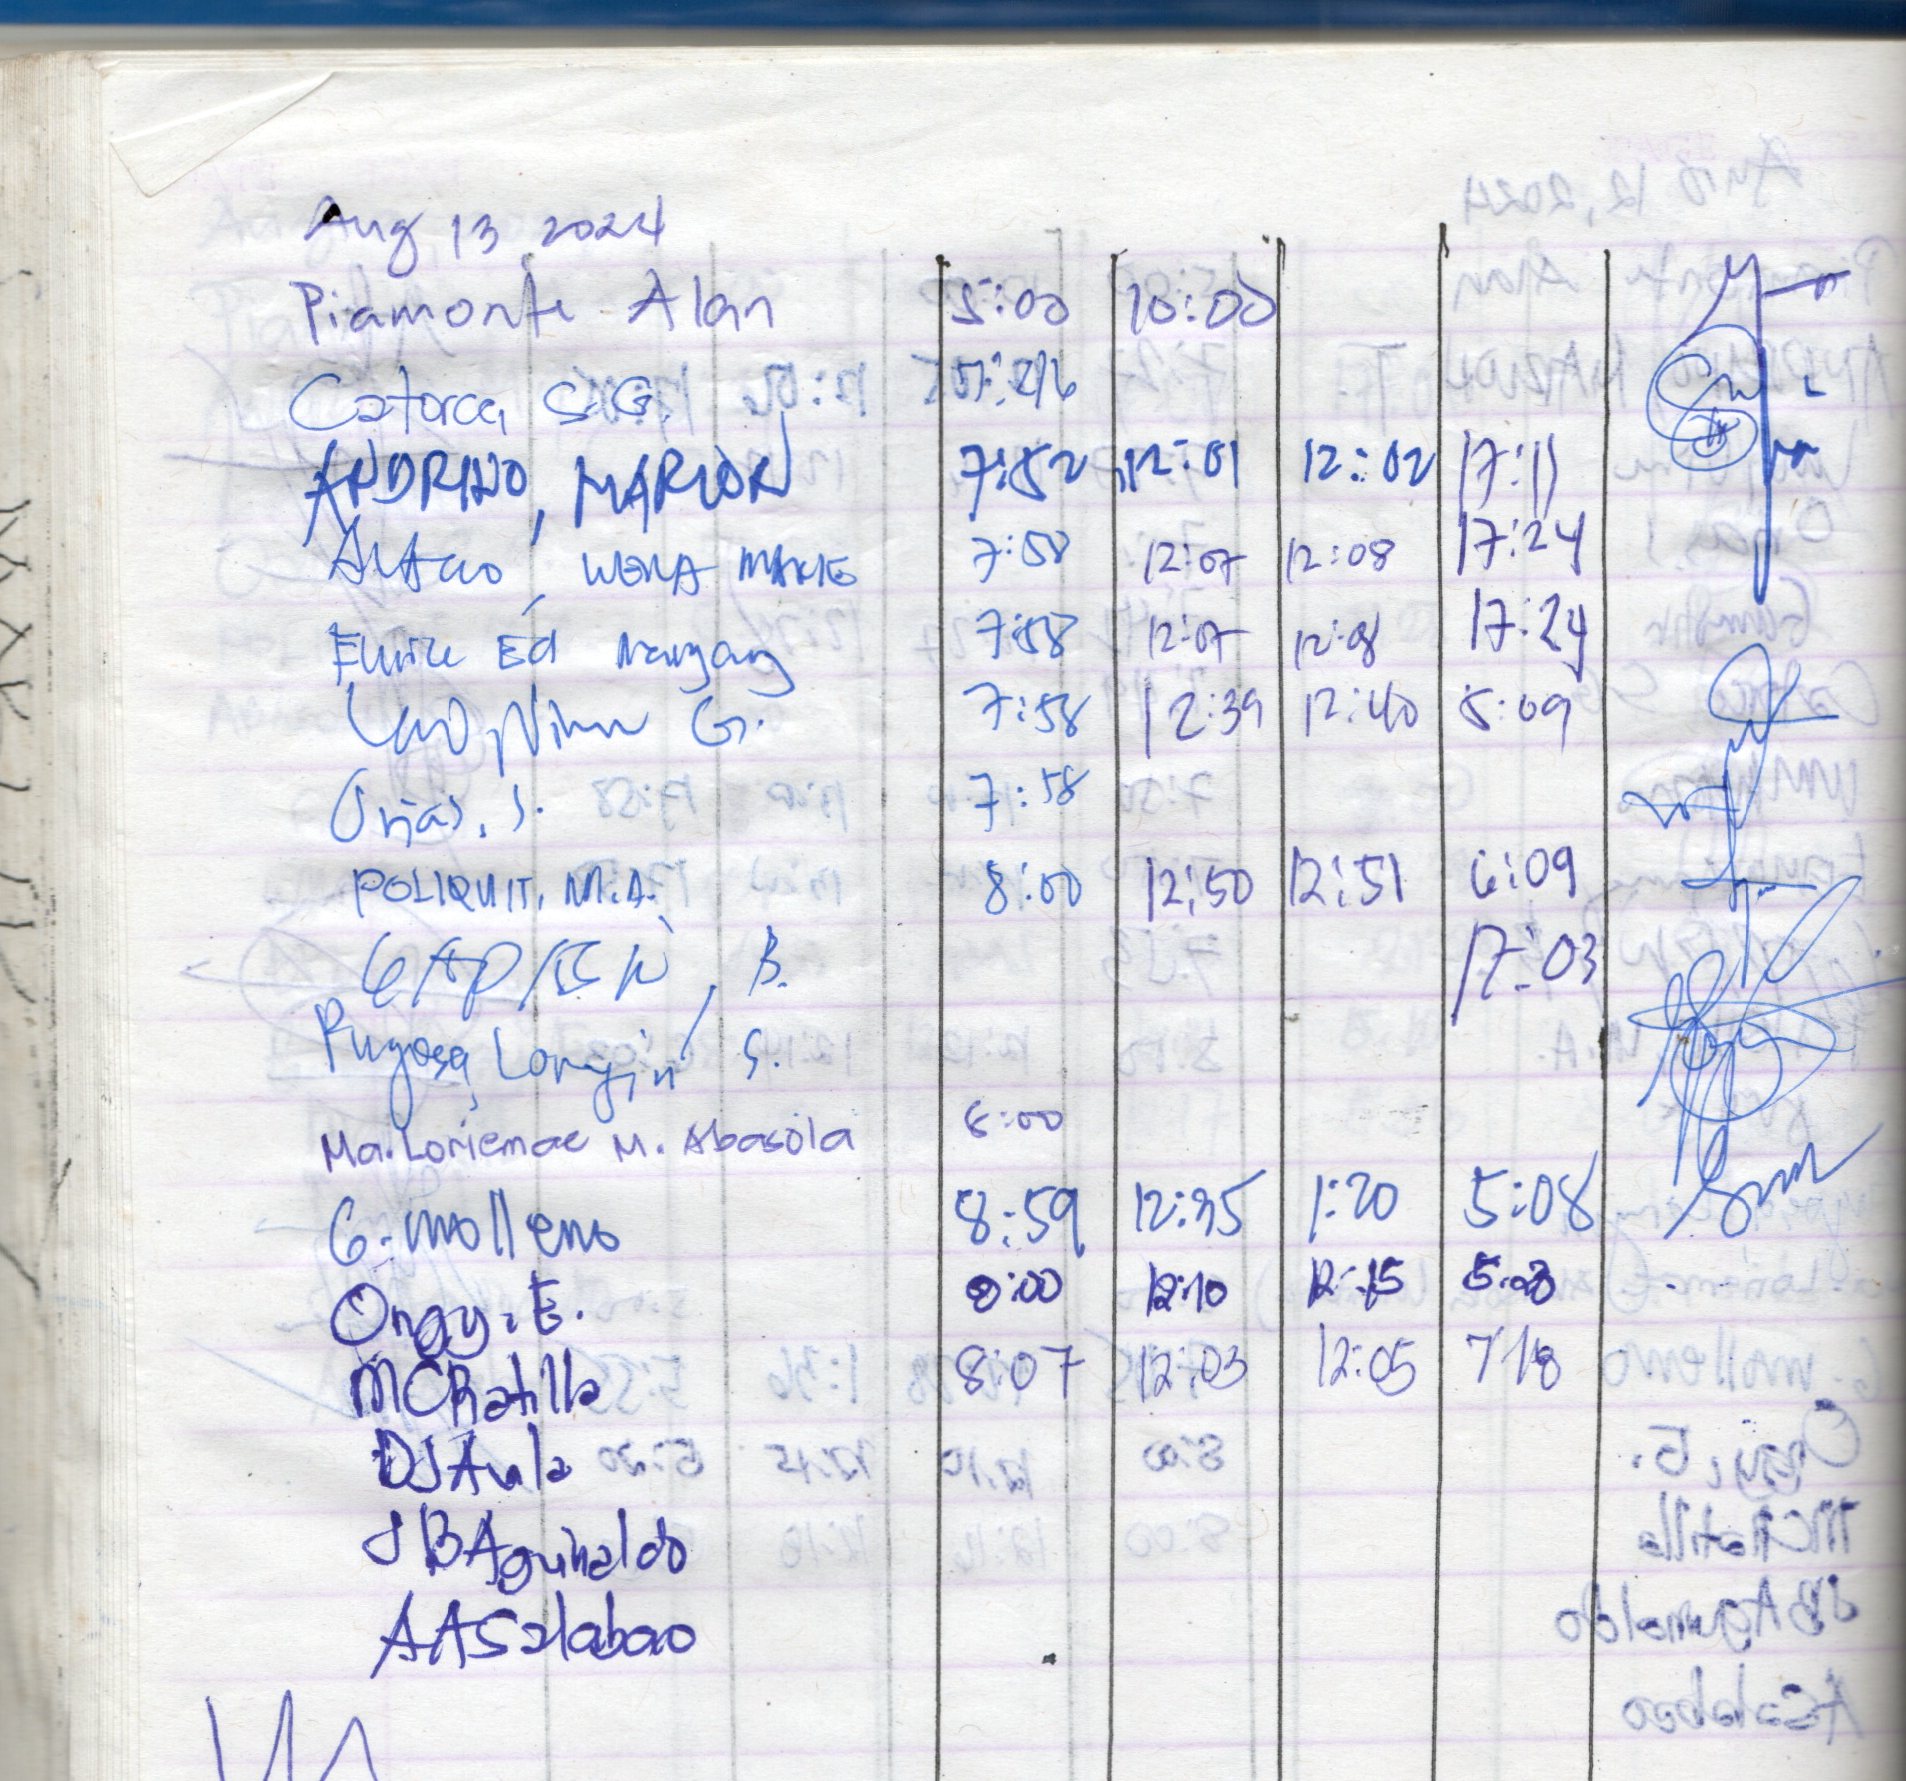 Aug 13, 2024
Piamonte Alan 5:00 10:00
Catorce, S.G.
ANDRINO, MARION 7:52 12:01 12:02 17:11
7:58 12:07 12:08 17:24
Ed 7:58 12:07 12:08 17:24
G. 7:58 12:39 12:40 5:09
Orjas, S. 7:58
POLIQUIT, M.A. 8:00 12:50 12:51 6:09
B. 17:03
Pugosa, Longin S.
Ma. Loriemae M. Abasola 8:00
G. molleno 8:59 12:35 1:20 5:08
Ongy, E. 8:00 12:10 12:15
MCRatilla 8:07 12:03 12:05 718
DJAula
JBAguinaldo
AASalabao